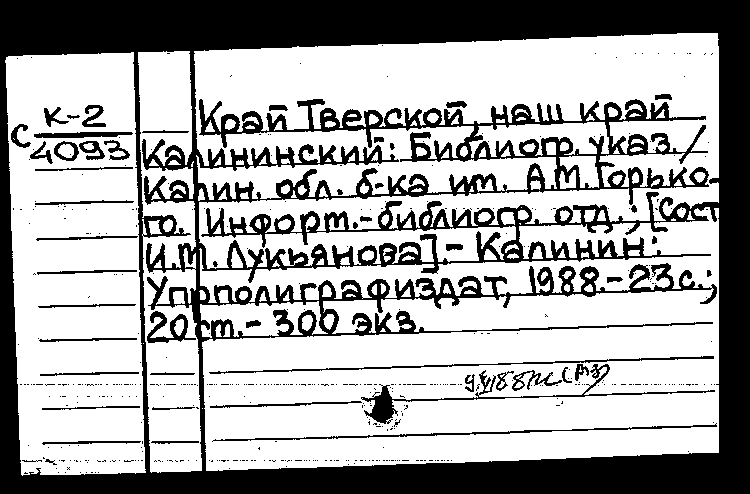 К-2
С 4093
Край Тверской, наш край
Калининский: Библиогр. указ./
Калин. обл. б-ка им. А.М.Горько-
го. Информ.-библиогр. отд.; [Сост
И.М. Лукьянова].- Калинин:
Упрполиграфиздат, 1988.- 23 с.;
20 ст.- 300 экз.